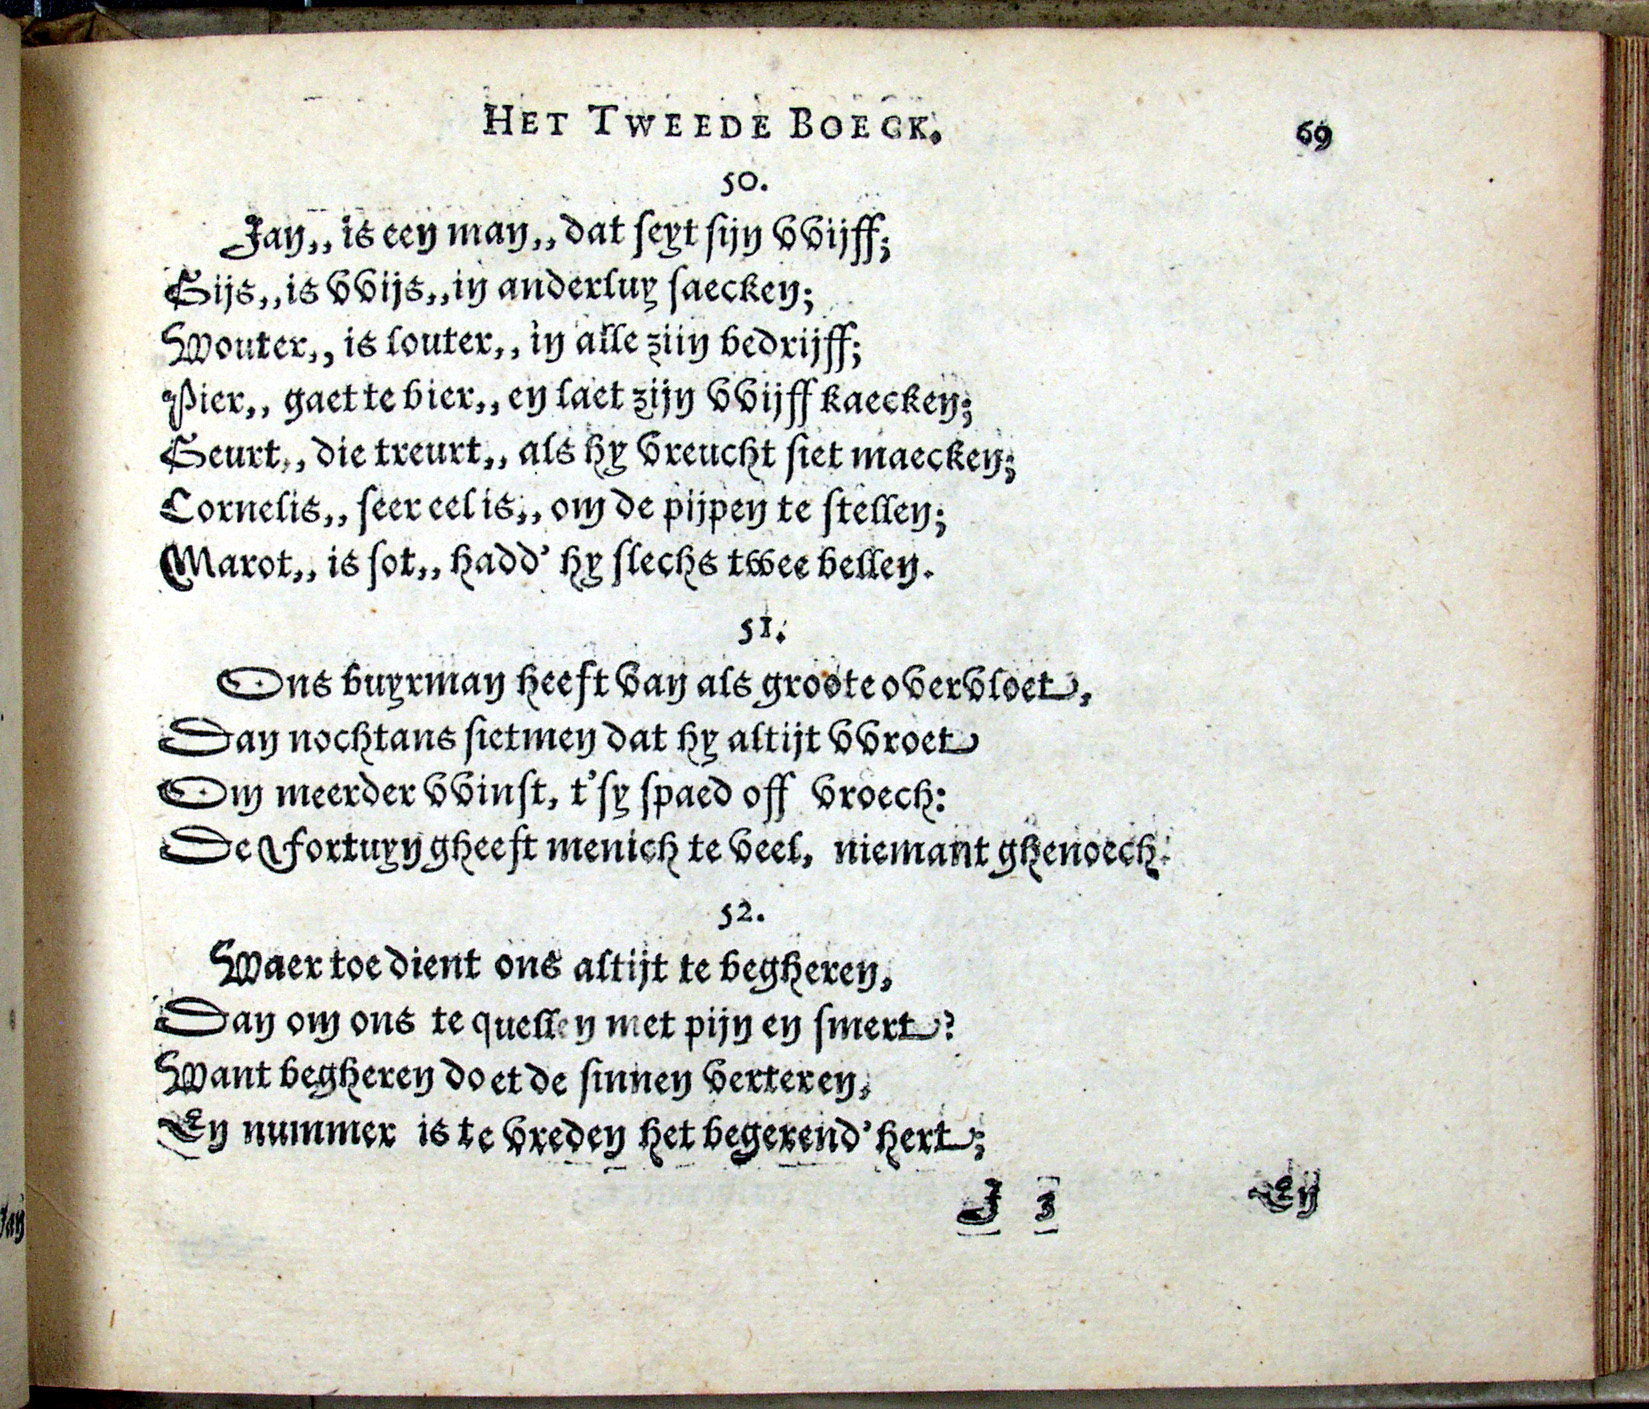 HET TWEEDE BOECK. 69
50.
Jan,, is een man,, dat seyt sijn vvijff;
Gijs,, is vvijs,, in anderluy saecken;
Wouter,, is louter,, in alle ziin bedrijff;
Pier,, gaet te bier,, en laet zijn vvijff kaecken;
Geurt,, die treurt,, als hy vreucht siet maecken;
Cornelis,, seer eel is,, om de pijpen te stellen;
Marot,, is sot,, hadd' hy slechs twee bellen.
51.
Ons buyrman heeft van als groote overvloet,
Dan nochtans sietmen dat hy altijt vvroet
Om meerder vvinst, t'sy spaed off vroech:
De Fortuyn gheeft menich te veel, niemant ghenoech.
52.
Waer toe dient ons altijt te begheren,
Dan om ons te quellen met pijn en smert?
Want begheren doet de sinnen verteren,
En nummer is te vreden het begerend' hert;
J 3 En